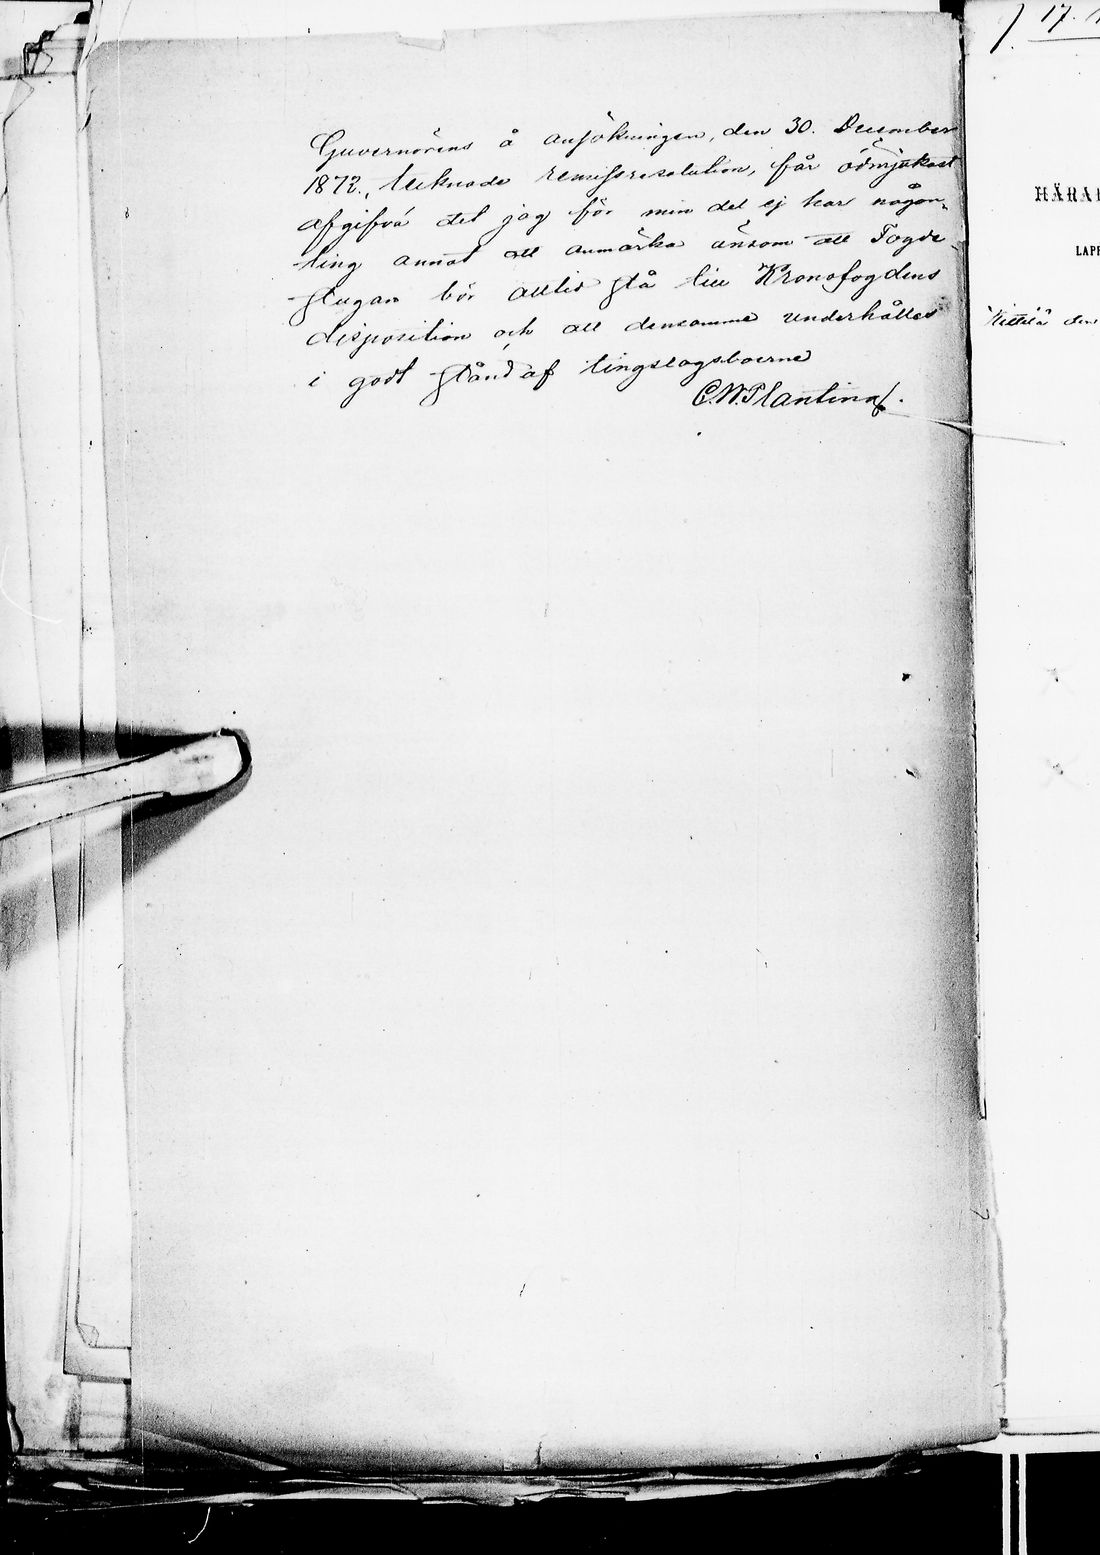 Guvernörens å ansökningen, den 30. December
1872, teknade remissresolution, får ödmjukast
afgifva det jag för min del ej har någon-
ting annat att anmärka änsom att Fogde-
stugan bör alltid stå till Kronofogdens
disposition och att densamma underhålles
i godt stånd af tingslagsboerne
C.W.Plantin
17.
HÄRA
LAPP
Kittilä den